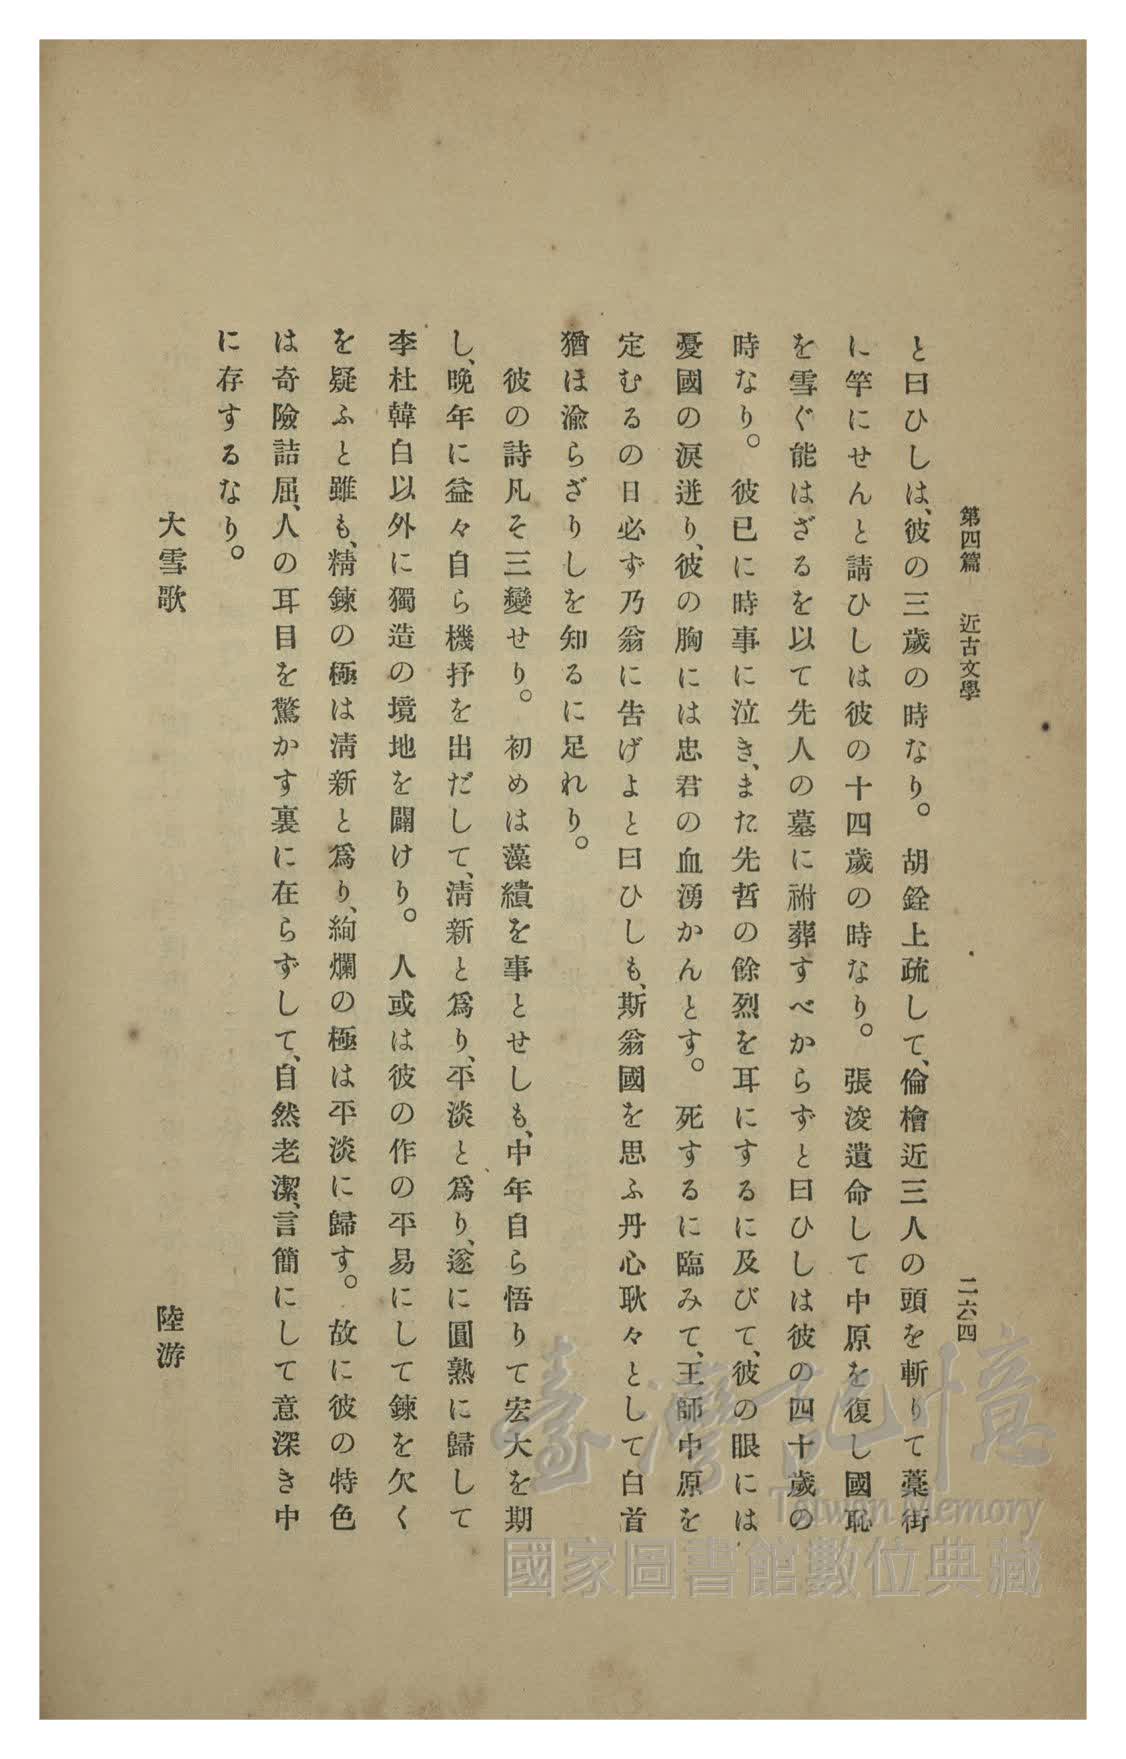 第四篇　近古文學
二六四
と曰ひしは、彼の三歲の時なり。胡銓上疏して、倫檜近三人の頭を斬りて藁街
に竿にせんと請ひしは彼の十四歲の時なり。張浚遺命して中原を復し國恥
を雪ぐ能はざるを以て先人の墓に祔葬すべからずと曰ひしは彼の四十歲の
時なり。彼已に時事に泣き、また先哲の餘烈を耳にするに及びて、彼の眼には
憂國の淚迸り、彼の胸には忠君の血湧かんとす。死するに臨みて、王師中原を
定むるの日必ず乃翁に告げよと曰ひしも、斯翁國を思ふ丹心耿々として白首
猶ほ渝らざりしを知るに足れり。
彼の詩凡そ三變せり。初めは藻繢を事とせしも、中年自ら悟りて宏大を期
し、晚年に益々自ら機抒を出だして、淸新と爲り、平淡と爲り、遂に圓熟に歸して
李杜韓白以外に獨造の境地を闢けり。人或は彼の作の平易にして鍊を欠く
を疑ふと雖も、精鍊の極は淸新と爲り、絢爛の極は平淡に歸す。故に彼の特色
は奇險詰屈、人の耳目を驚かす裏に在らずして、自然老潔、言簡にして意深き中
に存するなり。
大雪歌　陸游
臺灣記憶
Taiwan Memory
國家圖書館數位典藏